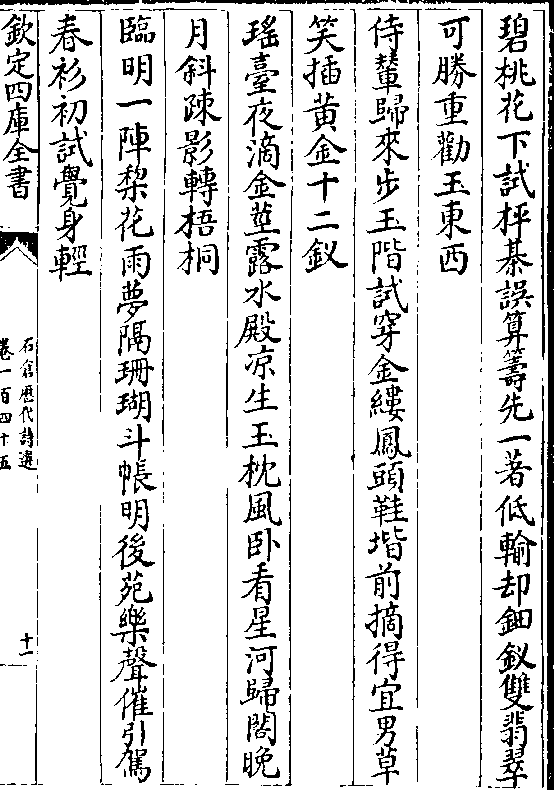 碧桃花下試枰棊誤算籌先一著低輸却鈿釵雙翡翠
可勝重勸玉東西
侍輦歸來步玉階試穿金縷鳳頭鞋堦前摘得宜男草
笑插黄金十二釵
瑤臺夜滴金莖露水殿凉生玉枕風卧看星河歸閣晚
月斜疎影轉梧桐
臨明一陣梨花雨夢隔珊瑚斗帳明後苑樂聲催引駕
春衫初試覺身輕
欽定四庫全書
石倉歷代詩選
卷一百四十五
十一